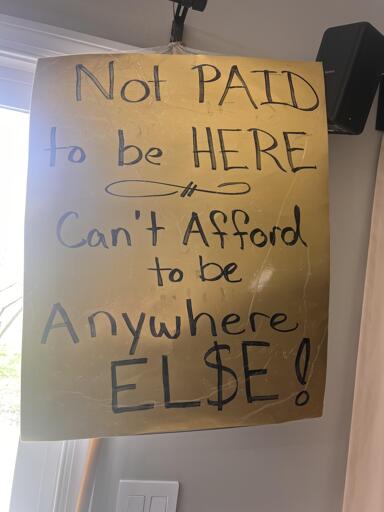 Not PAID
to be HERE
Can't Afford
to be
Anywhere
EL$E!